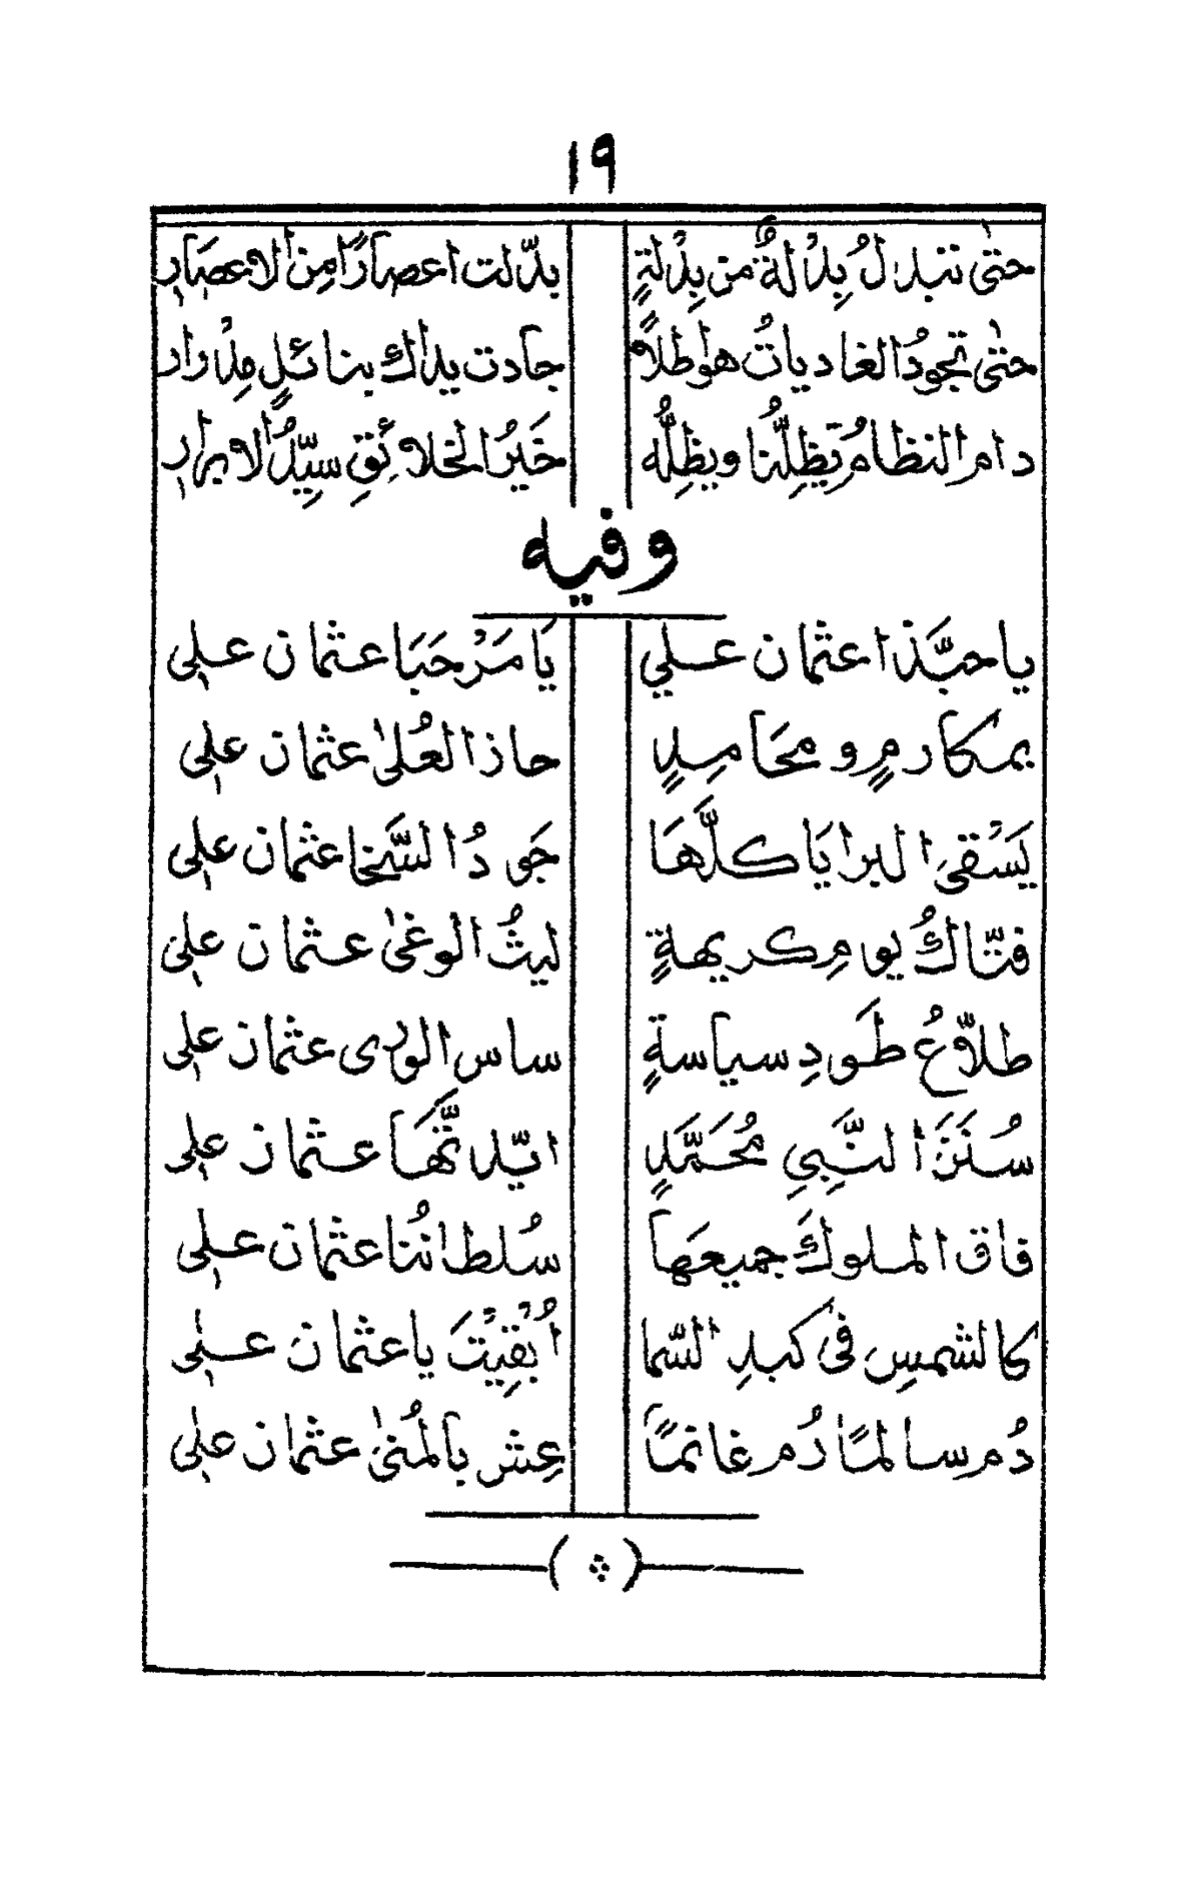 ١٩
حتى تبدلُ بِذْلةٌ من بِذْلةٍ بدّلت اعصارًا مِن الاعصار
حتى تجودُ الغادياتُ هواطلًا جادت يداك بنائلٍ مِدْرار
دام النظامُ يَظِلُّنا ويظِلُّه خَيرُ الخلائقِ سيِّدُ الابرار
وفيه
يا حبَّذا عثمان علي يَا مَرْحَبَا عثمان علي
بمكارمٍ و محَامِدٍ حاز العُلىٰ عثمان علي
يَسْقى البرايَا كلَّهَا جَودُ السَّخا عثمان علي
فتّاكُ يومِ كريهةٍ ليثُ الوغىٰ عثمان علي
طلاّعُ طَودِ سياسةٍ ساس الورى عثمان علي
سُنَنَ النَّبِيِ مُحَمَّدٍ ايّدتَّهَا عثمان علي
فاق الملوكَ جميعَها سُلطانُنا عثمان علي
كالشمسِ فى كبدِ السّما اُبْقِيْتَ يا عثمان علي
دُم سالمًا دُم غانمًا عِش بالمُنىٰ عثمان علي